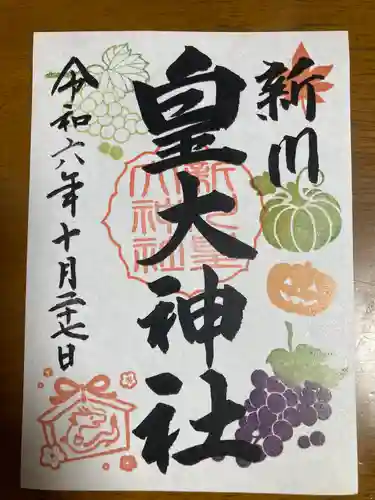 新川
皇大神社
令和六年十月二十七日
新川皇
大神社